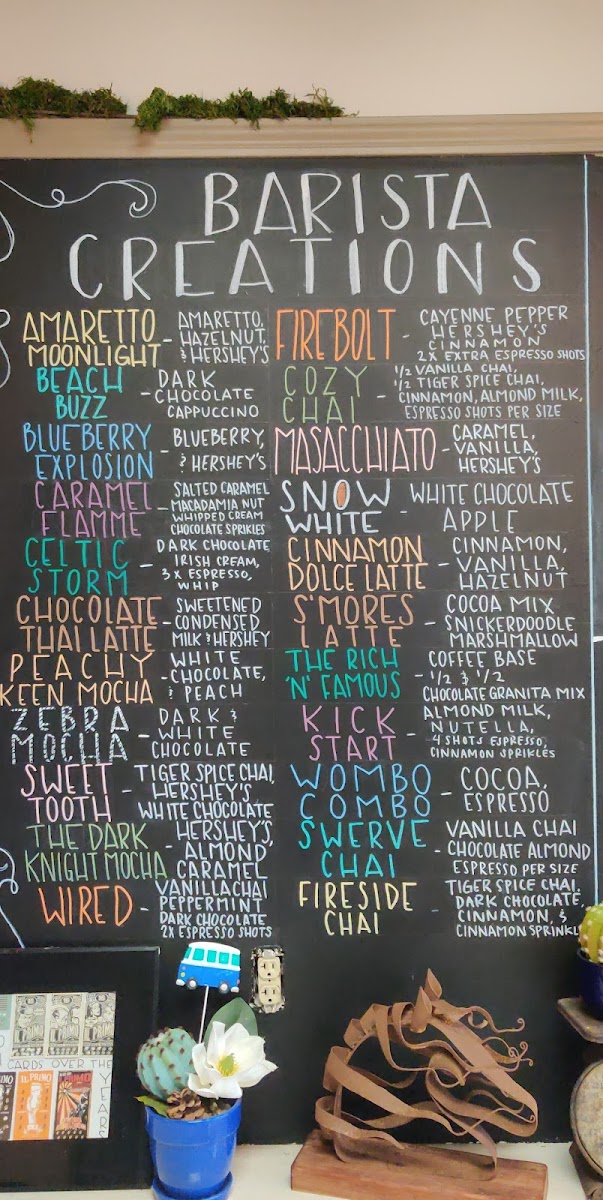 BARISTA
CREATIONS
AMARETTO
MOONLIGHT
- AMARETTO,
HAZELNUT,
& HERSHEY'S
BEACH
BUZZ
- DARK
CHOCOLATE
CAPPUCCINO
BLUEBERRY
EXPLOSION
- BLUEBERRY,
& HERSHEY'S
CARAMEL
FLAMME
- SALTED CARAMEL
MACADAMIA NUT
WHIPPED CREAM
CHOCOLATE SPRIKLES
CELTIC
STORM
- DARK CHOCOLATE
IRISH CREAM,
3X ESPRESSO,
WHIP
CHOCOLATE
THAI LATTE
- SWEETENED
CONDENSED
MILK & HERSHEY
PEACHY
KEEN MOCHA
- WHITE
CHOCOLATE,
& PEACH
ZEBRA
MOCHA
- DARK &
WHITE
CHOCOLATE
SWEET
TOOTH
- TIGER SPICE CHAI,
HERSHEY'S
WHITE CHOCOLATE
THE DARK
KNIGHT MOCHA
- HERSHEY'S,
ALMOND
CARAMEL
WIRED
- VANILLA CHAI
PEPPERMINT
DARK CHOCOLATE
2X ESPRESSO SHOTS
FIREBOLT
- CAYENNE PEPPER
HERSHEY'S
CINNAMON
2X EXTRA ESPRESSO SHOTS
COZY
CHAI
- 1/2 VANILLA CHAI,
1/2 TIGER SPICE CHAI,
CINNAMON, ALMOND MILK,
ESPRESSO SHOTS PER SIZE
MASACCHIATO
- CARAMEL,
VANILLA,
HERSHEY'S
SNOW
WHITE
- WHITE CHOCOLATE
APPLE
CINNAMON
DOLCE LATTE
- CINNAMON,
VANILLA,
HAZELNUT
S'MORES
LATTE
- COCOA MIX
SNICKERDOODLE
MARSHMALLOW
THE RICH
'N' FAMOUS
- COFFEE BASE
1/2 & 1/2
CHOCOLATE GRANITA MIX
KICK
START
- ALMOND MILK,
NUTELLA,
4 SHOTS ESPRESSO,
CINNAMON SPRIKLES
WOMBO
COMBO
- COCOA,
ESPRESSO
SWERVE
CHAI
- VANILLA CHAI
CHOCOLATE ALMOND
ESPRESSO PER SIZE
FIRESIDE
CHAI
- TIGER SPICE CHAI,
DARK CHOCOLATE,
CINNAMON, &
CINNAMON SPRINKL
CARDS OVER THE
YEARS
IL PRIMO